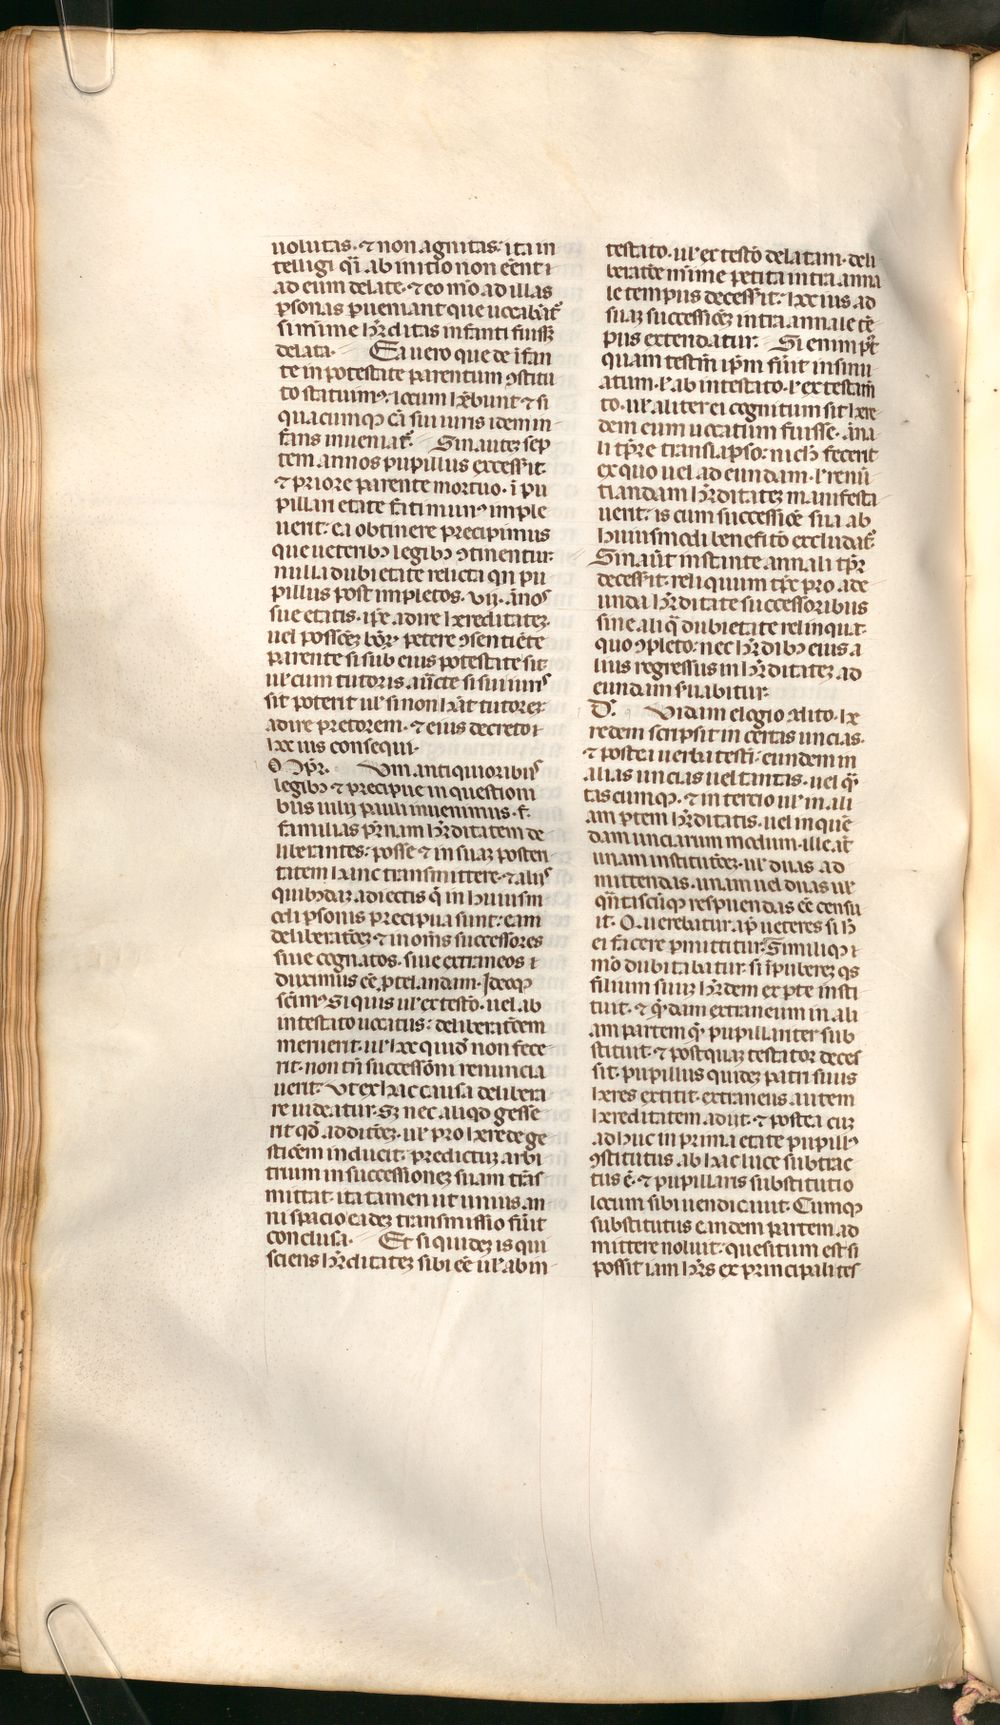 uolutas. ⁊ non agnitas: ita in
telligi q̄i ab initio non eēnt i
ad eum delate. ⁊ eo mō ad illas
ꝑsonas ꝑueniant que uocabāt᷑
si mīme h̄editas infanti fuiss;
delata. Ea uero que de īfan
te in potestate parentum ꝯstitu
to statuimꝰ. locum h̄ebunt ⁊ si
quacumqꝫ cā sui iuris idem in
fans inueniat᷑. Sin autez sep
tem annos pupillus excess̄it:
⁊ priore parente mortuo. ī pu
pillari etate
uent: ea obtinere precipimus
que ueteribꝫ legibꝫ ꝯtinentur.
nulla dubietate relicta qn̄ pu
pillus post impletos. vii. ānos
sue etatis. ip̄e adire hereditatez.
uel possōez bōꝝ petere ꝯsentiēte
parente si sub eius potestate sit:
ul̓ cum tutoris aūcte si sui iuris
sit poterit ul̓ si non h̄at tutorez.
adire pretorem. ⁊ eius decreto i
hoc ius consequi.
Vm antiquioribus
legibꝫ ⁊ precipue in question
bus iulii pauli inuenimus. f.
familias pr̄nam h̄editatem de
liberantes: posse ⁊ in suaꝫ posteri
tatem hanc transmittere. ⁊ aliis
quibꝫdaꝫ adiectis q̄ in huiusm
odi ꝑsonis precipua sunt: eam
deliberatōez ⁊ in om̄s successores
siue cognatos. siue extraneos i
duximus eē ꝓtelandam. Ideoqꝫ
scīmꝰ Si quis ul̓ ex testō. uel ab
intestato uocatus: deliberatōem
meruerit. ul̓ hoc quid̄ non fece
rit. non tn̄ successōni renuncia
uerit. Vt ex hac causa delibera
re uideatur. Sꝫ nec aliqd gesse
rit qd̄ aditōez. ul̓ pro herede ge
stioēm inducit: predictuꝫ arbi
trium in successionez suam trās
mittat. ita tamen ut unius an
ni spacio eadez transmissio fūit
conclusa. Et si quidez is qui
sciens h̄editatez sibi eē ul̓ ab in
testato. ul̓ ex testō delatam. deli
beratōe mīme petita intra anna
le tempus decess̄it: hoc ius ad
suaꝫ successiōez intra annale tē
pus extendatur. Si enim pꝰt
quam testm̄ ip̄m fūit insinu
atum. l̓ ab intestato. l̓ ex testam̄
to. ul̓ aliter ei cognitum sit here
dem eum uocatum fuisse. āna
li tp̄re translapso: nichꝫ fecerit
ex quo uel adeundam. l̓ renū
tiandam h̄editatez manifesta
uerit: is cum successiōe sua ab
huiusmodi benefitō excludat᷑.
Sin aūt instante annali tp̄r
decess̄it. reliquum tp̄e pro ade
unda h̄editate successoribus
sine aliq̄ dubietate relinquit:
quo ꝯpleto: nec h̄edibꝫ eius a
lius regressus in h̄editatez ad
eundam s̄uabitur.
D. Vidam elogio ꝯdito. he
redem scripsit in certas uncias.
⁊ postea uerba testi: eundem in
alias uncias uel tantas. uel q̄n
tascumqꝫ. ⁊ in tercio ul̓ in ali
am ꝑtem h̄editatis. uel in quē
dam unciarum modum. ille at̄
unam institutōez. ul̓ duas ad
mittendas. unam uel duas ul̓
qn̄tascūqꝫ respuendas eē censu
it. Querebatur ap̄ ueteres si h̄
ei facere ꝑmittitur. Similiqꝫ i
mō dubitabatur. si īpuberez qs
filium suuꝫ h̄edem ex ꝑte insti
tuit. ⁊ q̄dam extraneum in ali
am partem que pupillariter sub
stituit. ⁊ postquaꝫ testator deces
sit. pupillus quidez patri suus
heres extitit. extraneus autem
hereditatem adiit. ⁊ postea cuꝫ
adhuc in prima etate pupillꝰ
ꝯstitutus ab hac luce subtrac
tus ē. ⁊ pupillaris substitutio
locum sibi uendicauit. Cumqꝫ
substitutus eandem partem ad
mittere noluit: quesitum est si
possit iam h̄es ex principali tes